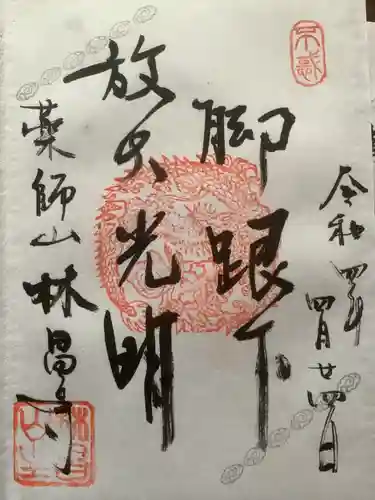 令和四年四月廿四日
脚跟下
放大光明
薬師山林昌寺